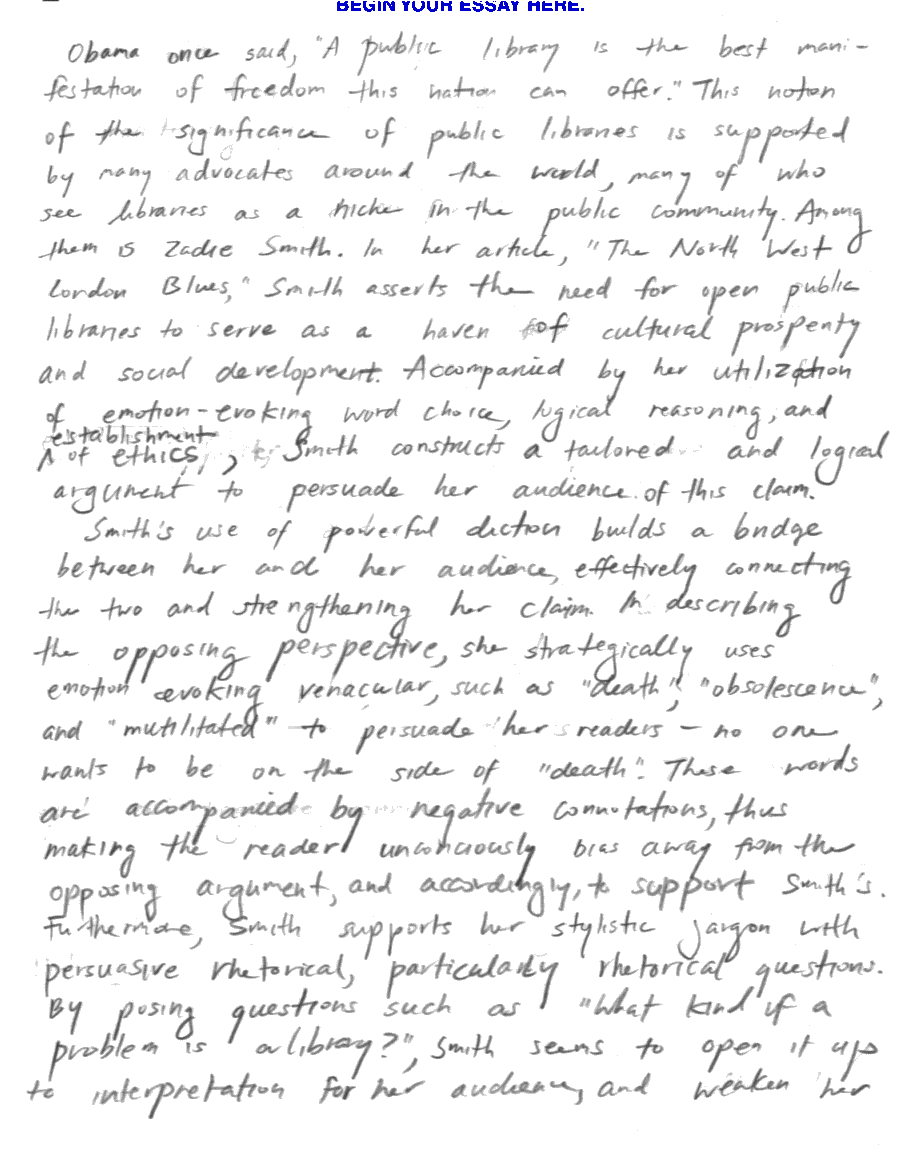 BEGIN YOUR ESSAY HERE.
Obama once said, "A public library is the best mani-
festation of freedom this nation can offer." This notion
of the significance of public libraries is supported
by many advocates around the world, many of who
see libraries as a niche in the public community. Among
them is Zadie Smith. In her article, "The North West
London Blues," Smith asserts the need for open public
libraries to serve as a haven of cultural prosperity
and social development. Accompanied by her utilization
of emotion-evoking word choice, logical reasoning, and
establishment
^ of ethics, Smith constructs a tailored and logical
argument to persuade her audience of this claim.
Smith's use of powerful diction builds a bridge
between her and her audience, effectively connecting
the two and strengthening her claim. In describing
the opposing perspective, she strategically uses
emotion evoking venacular, such as "death", "obsolescence",
and "mutilitated" to persuade her readers – no one
wants to be on the side of "death". These words
are accompanied by negative connotations, thus
making the reader unconciously bias away from the
opposing argument, and accordingly, to support Smith's.
Furthermore, Smith supports her stylistic jargon with
persuasive rhetorical, particularly rhetorical questions.
By posing questions such as "What kind if a
problem is a library?", Smith seems to open it up
to interpretation for her audience, and weaken her